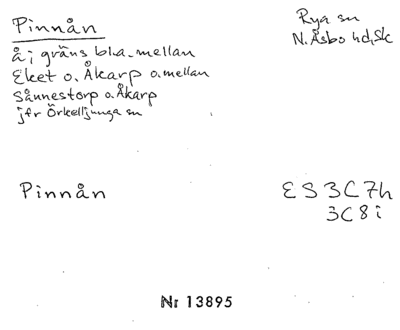 Pinnån
Rya sn
N. Åsbo hd, Sk
å i gräns bl.a. mellan
Eket o. Åkarp o. mellan
Sånnestorp o. Åkarp
jfr Örkelljunga sn
Pinnån
ES 3C7h
3C8i
Nr 13895